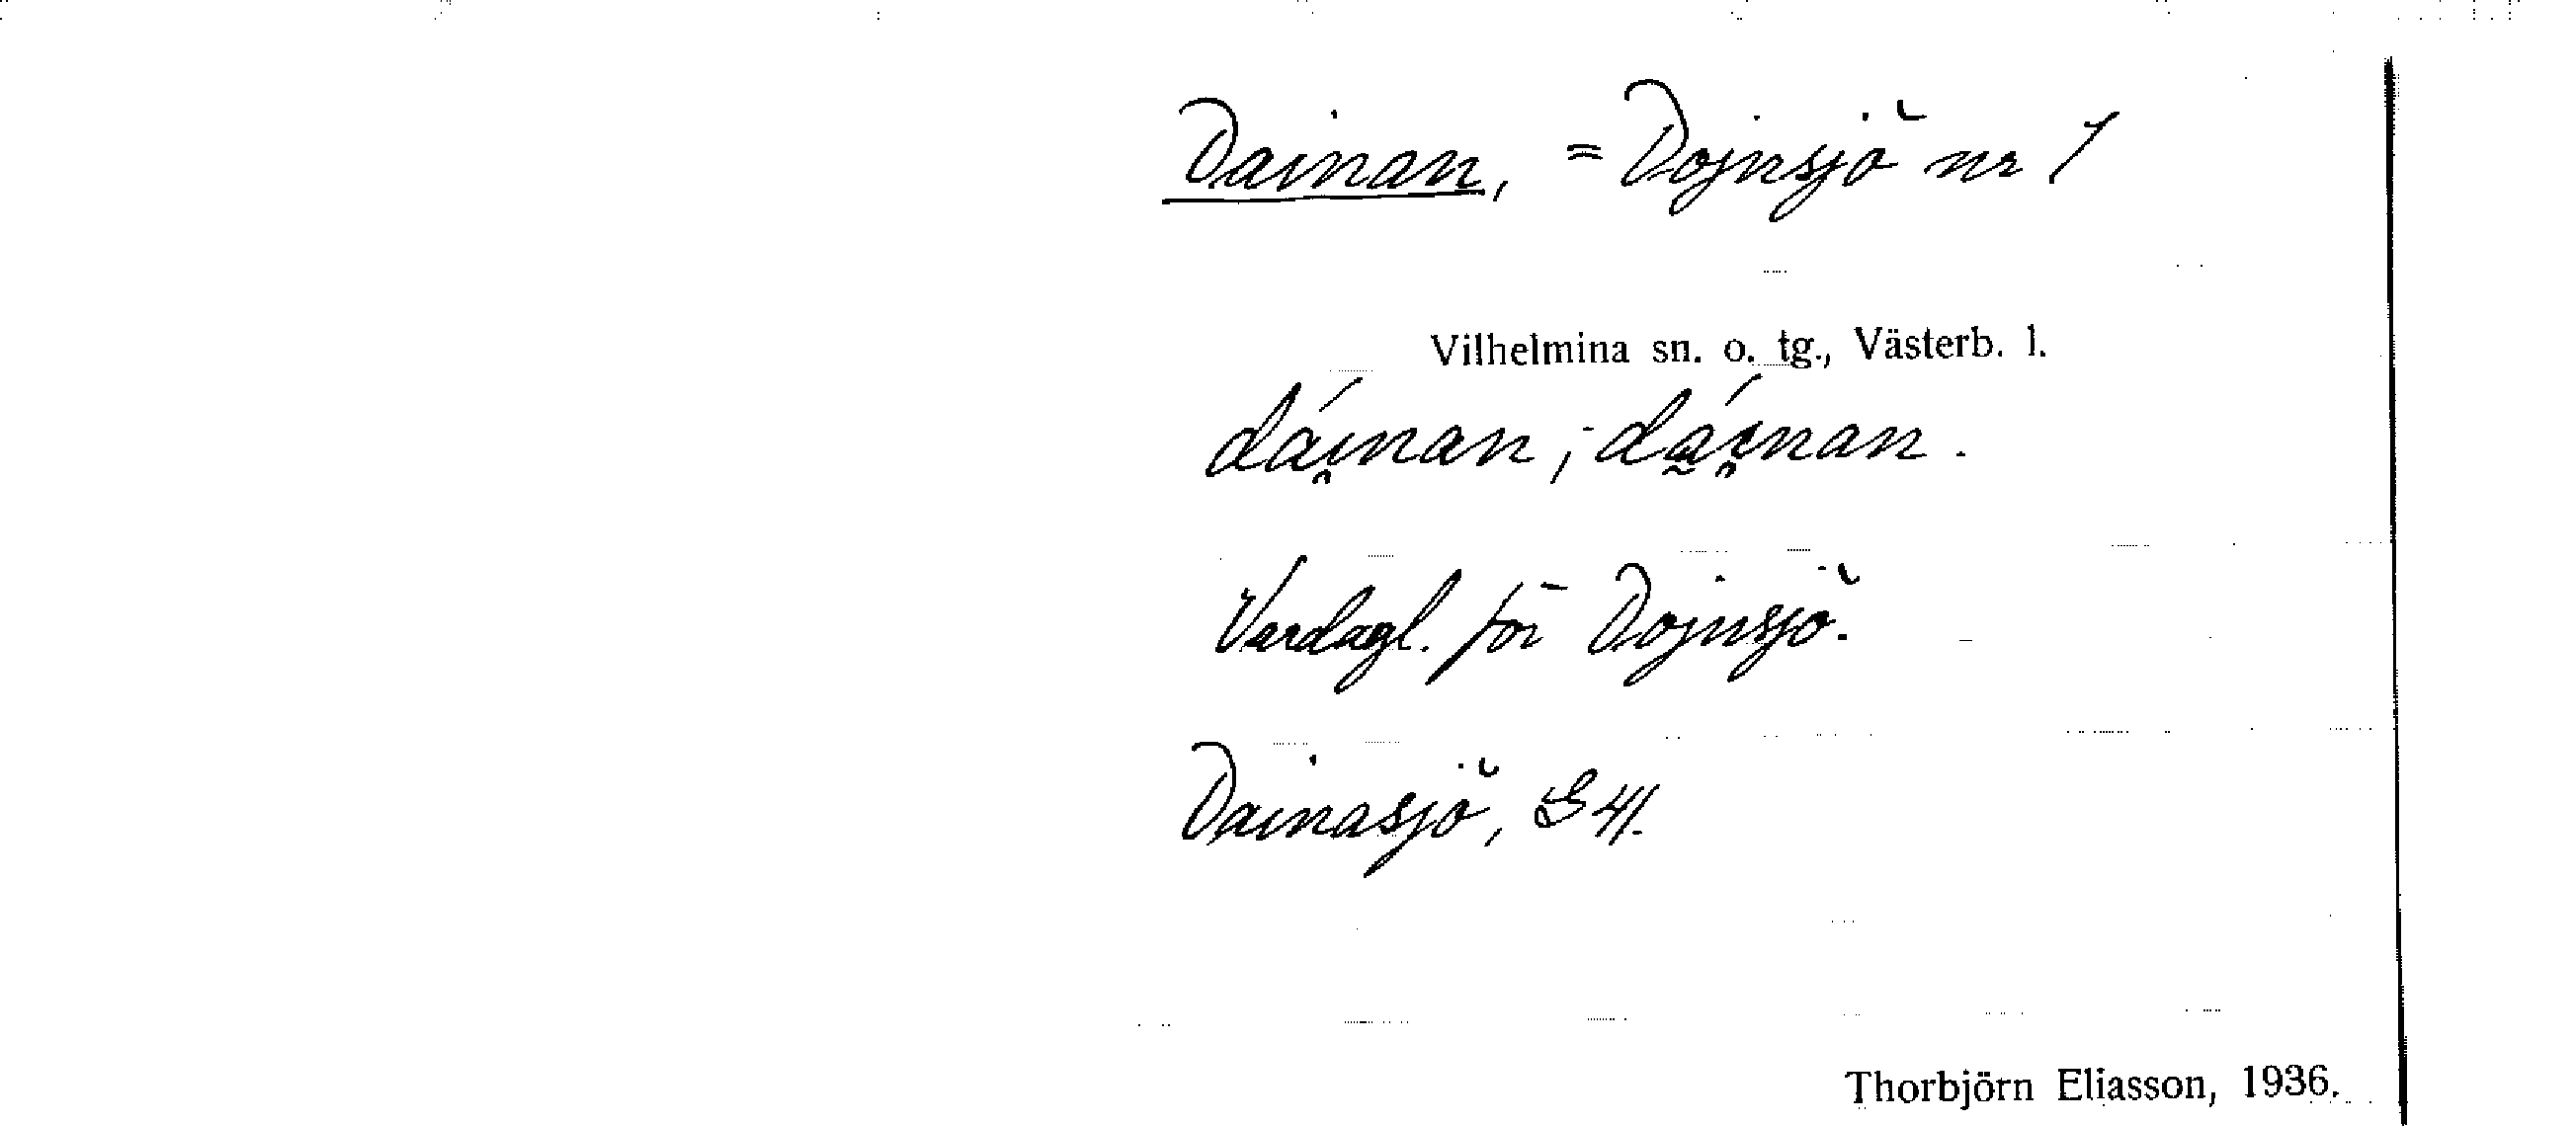 Dainan, = Dojnsjö nr 1
Vilhelmina sn. o. tg., Västerb. l.
dái̯nan; dá̰i̯nan.
Vardagl. för Dojnsjö.
Dainasjö, G41.
Thorbjörn Eliasson, 1936.